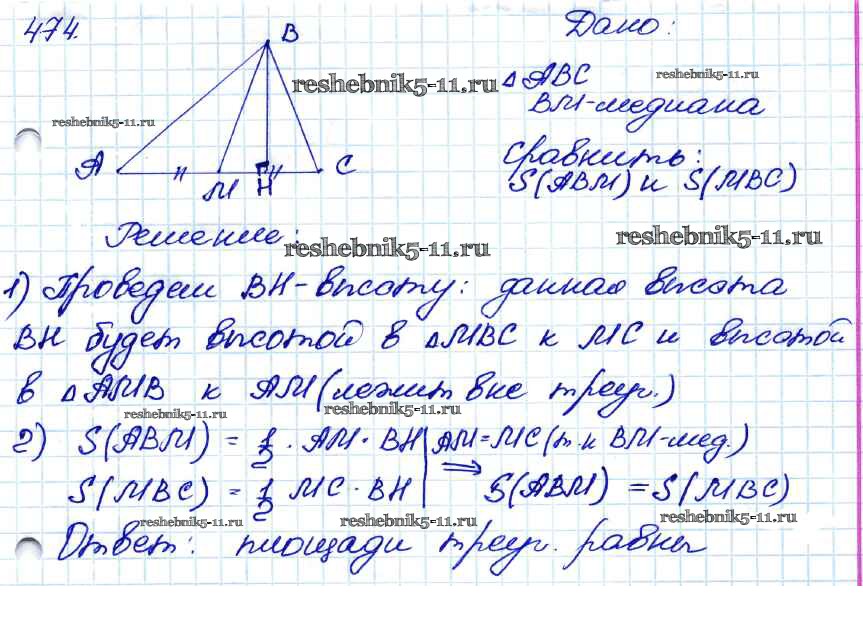 474.
B
A
M
H
C
Дано:
△ABC
BM-медиана
Сравнить:
S(ABM) и S(MBC)
reshebnik5-11.ru
reshebnik5-11.ru
reshebnik5-11.ru
Решение:
reshebnik5-11.ru
reshebnik5-11.ru
1) Проведем BH-высоту: данная высота
BH будет высотой в △MBC к MC и высотой
в △AMB к AM (лежит вне треуг.)
reshebnik5-11.ru
reshebnik5-11.ru
2) S(ABM) = 1/2 · AM · BH | AM=MC (т.к BM-мед.)
S(MBC) = 1/2 MC · BH | ⟹ S(ABM) = S(MBC)
reshebnik5-11.ru
reshebnik5-11.ru
reshebnik5-11.ru
Ответ: площади треуг. равны